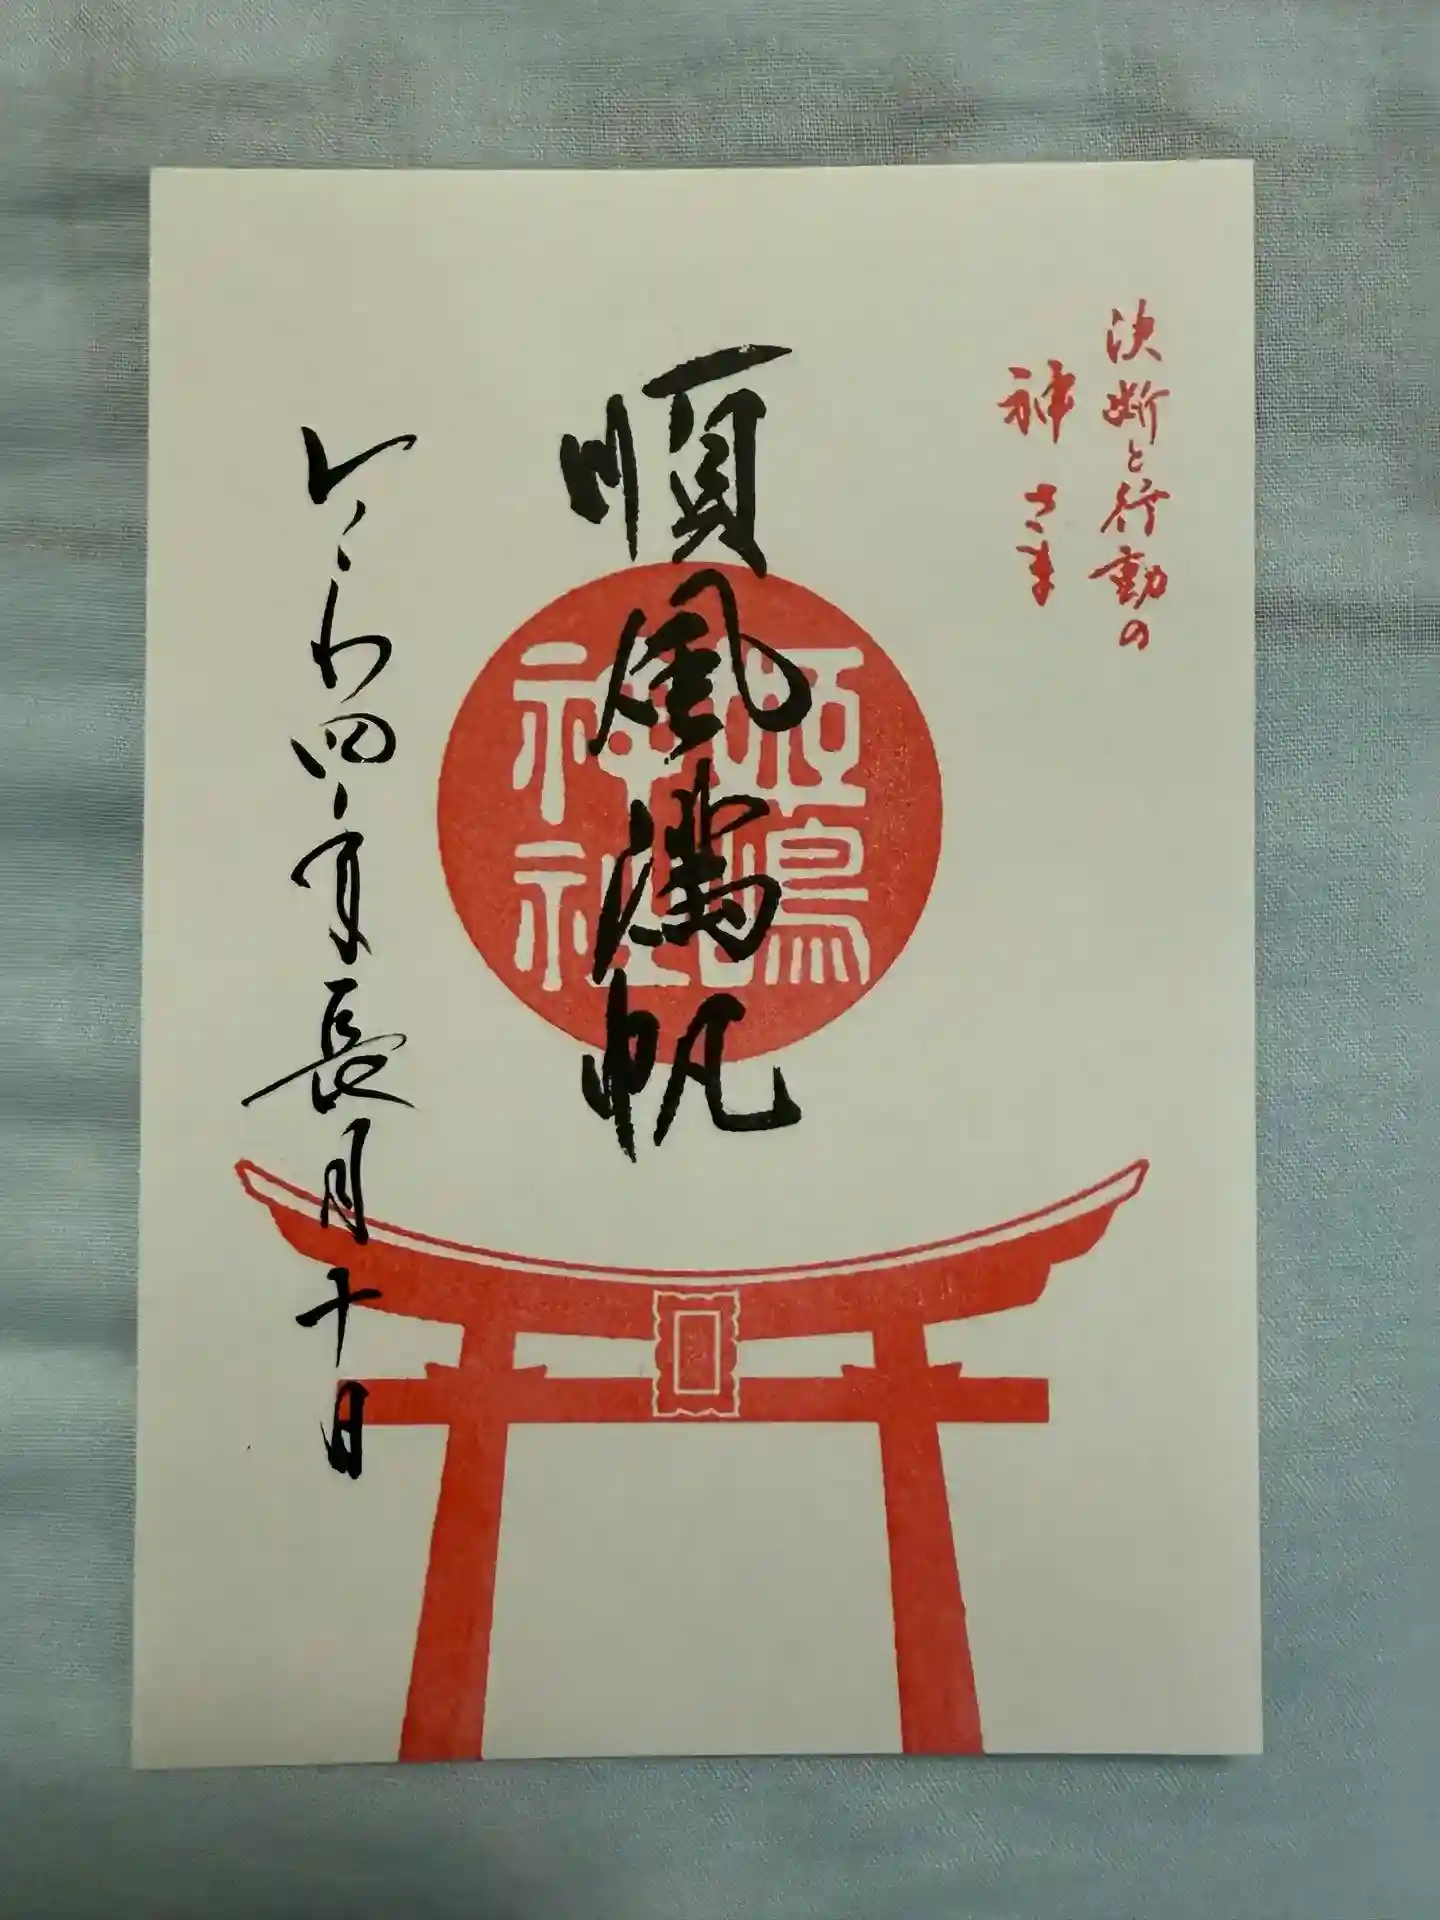 決断と行動の
神さま
順風満帆
姫嶋
神社
れいわ四年長月十日